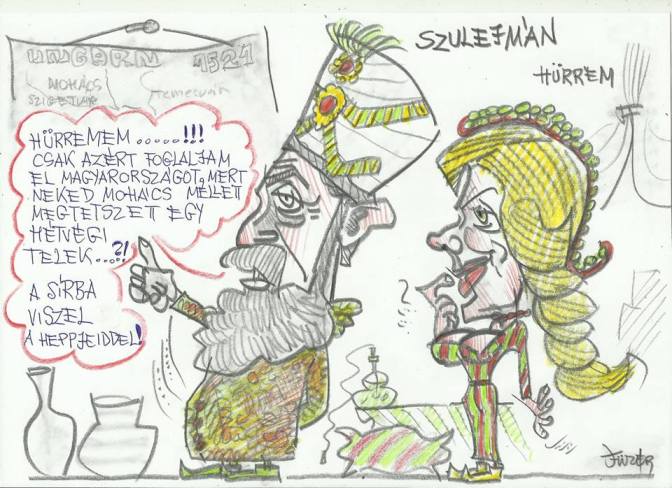 SZULEJMÁN
HÜRREM
UNGARN 1521
MOHÁCS
SZIGETVÁR
Temesvár
HÜRREMEM.....!!!
CSAK AZÉRT FOGLALJAM
EL MAGYARORSZÁGOT, MERT
NEKED MOHÁCS MELLETT
MEGTETSZETT EGY
HÉTVÉGI
TELEK...?!
A SÍRBA
VISZEL
A HEPPJEIDDEL!